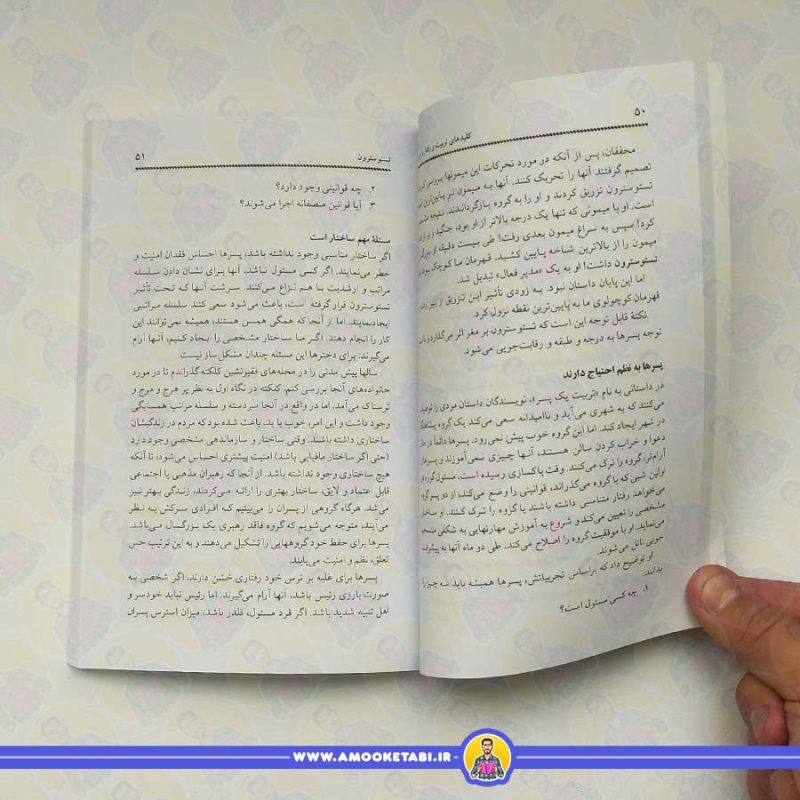 ۵۰
کلیدهای تربیت و رفتار با
محققان، پس از آنکه در مورد تحرکات این میمونها بررسی
تصمیم گرفتند آنها را تحریک کنند. آنها به میمون
تستوسترون تزریق کردند و او را به گروه بازگرداندند. نتیجه
است. او با میمونی که تنها یک درجه بالاتر از او بود، جنگید و
کرد! سپس به سراغ میمون بعدی رفت! طی بیست دقیقه او
میمون را از بالاترین شاخه پایین کشید. قهرمان ما کوچک بود
تستوسترون داشت! او به یک «مدیر فعال» تبدیل شد.
اما این پایان داستان نبود. به زودی تأثیر این تزریق از بین رفت
قهرمان کوچولوی ما به پایین‌ترین نقطه نزول کرد.
نکتهٔ قابل توجه این است که تستوسترون بر مغز اثر می‌گذارد و
توجه پسرها به درجه و طبقه و رقابت‌جویی می‌شود.
پسرها به نظم احتیاج دارند
در داستانی به نام «تربیت یک پسر»، نویسندگان داستان مردی را
می‌کنند که به شهری می‌آید و ناامیدانه سعی می‌کند یک گروه
در شهر ایجاد کند. اما این گروه خوب پیش نمی‌رود. پسرها دائم
دعوا و خراب کردن سالن هستند، آنها چیزی نمی‌آموزند و پسرهای
آرام‌تر، گروه را ترک می‌کنند. وقت پاکسازی رسیده است. مسئول گروه
اولین شبی که با گروه می‌گذراند، قوانینی را وضع می‌کند، از دو پسر
می‌خواهد رفتار متناسبی داشته باشند یا گروه را ترک کنند. او ساختار
مشخصی را تعیین می‌کند و شروع به آموزش مهارتهایی به شکلی
می‌نماید. او با موفقیت گروه را اصلاح می‌کند. طی دو ماه آنها به پیشرفت
خوبی نائل می‌شوند.
او توضیح داد که براساس تجربیاتش، پسرها همیشه باید سه چیز را
بدانند:
۱. چه کسی مسئول است؟
تستوسترون
۵۱
۲. چه قوانینی وجود دارد؟
۳. آیا قوانین منصفانه اجرا می‌شوند؟
مسئلهٔ مهم ساختار است
اگر ساختار مناسبی وجود نداشته باشد، پسرها احساس فقدان امنیت و
خطر می‌نمایند. اگر کسی مسئول نباشد، آنها برای نشان دادن سلسله
مراتب و ارشدیت با هم نزاع می‌کنند. سرشت آنها که تحت تأثیر
تستوسترون قرار گرفته است، باعث می‌شود سعی کنند سلسله مراتبی
ایجادنمایند. اما از آنجا که همگی همسن هستند، همیشه نمی‌توانند این
کار را انجام دهند. اگر ما ساختار مشخصی را ایجاد کنیم، آنها آرام
می‌گیرند. برای دخترها این مسئله چندان مشکل ساز نیست.
سالها پیش مدتی را در محله‌های فقیرنشین کلکته گذراندم تا در مورد
خانواده‌های آنجا بررسی کنم. کلکته در نگاه اول به نظر پر هرج و مرج و
ترسناک می‌آمد. اما در واقع در آنجا سردسته و سلسله مراتب همسایگی
وجود داشت و این امر، خوب یا بد، باعث شده بود که مردم در زندگیشان
ساختاری داشته باشند. وقتی ساختار و سازماندهی مشخصی وجود دارد
(حتی اگر ساختار مافیایی باشد) امنیت بیشتری احساس می‌شود، تا آنکه
هیچ ساختاری وجود نداشته باشد. از آنجا که رهبران مذهبی یا اجتماعی
قابل اعتماد و لایق، ساختار بهتری را ارائه می‌کردند، زندگی بهتر نیز
می‌شد. هرگاه گروهی از پسران را می‌بینیم که افرادی سرکش به نظر
می‌آیند، متوجه می‌شویم که گروه فاقد رهبری یک بزرگسال می‌باشد.
پسرها برای حفظ خود گروههایی را تشکیل می‌دهند و به این ترتیب حس
تعلق، نظم و امنیت می‌یابند.
پسرها برای غلبه بر ترس خود رفتاری خشن دارند. اگر شخصی به
صورت بارزی رئیس باشد، آنها آرام می‌گیرند. اما رئیس نباید خودسر و
اهل تنبیه شدید باشد. اگر فرد مسئول، قلدر باشد، میزان استرس پسران
WWW.AMOOKETABI.IR